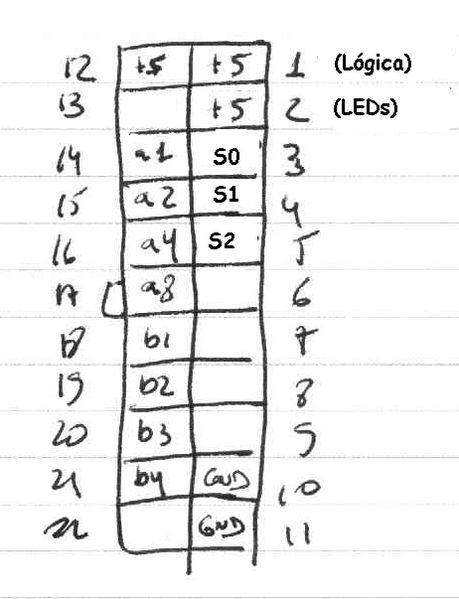 12 +5 +5 1 (Lógica)
13 +5 2 (LEDs)
14 a1 S0 3
15 a2 S1 4
16 a4 S2 5
17 a8 6
18 b1 7
19 b2 8
20 b3 9
21 b4 GND 10
22 GND 11